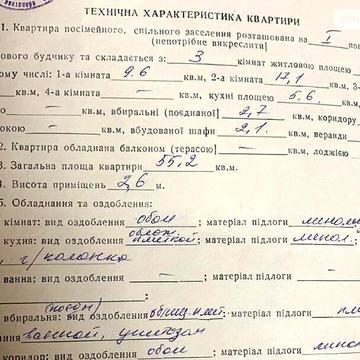 ТЕХНІЧНА ХАРАКТЕРИСТИКА КВАРТИРИ
1. Квартира посімейного, спільного заселення розташована на I
(непотрібне викреслити)
ового будинку та складається з: 3 кімнат житловою площею
му числі: 1-а кімната 9.6 кв.м, 2-а кімната 17,1 кв.м, 3-
кв.м, 4-а кімната — кв.м, кухні площею 5,6 кв.
— кв.м, вбиральні (поєднаної) 2,7 кв.м, коридору
окою — кв.м, вбудованої шафи 2,1. кв.м, веранди
2. Квартира обладнана балконом (терасою) — кв.м, лоджією
3. Загальна площа квартири 55,2 кв.м.
4. Висота приміщень 2,6 м.
5. Обладнання та оздоблення:
кімнат: вид оздоблення обои ; матеріал підлоги линоль
кухня: вид оздоблення облож. плиткой ; матеріал підлоги линол.
, г/колонка
ванна; вид оздоблення — ; матеріал підлоги —
вбиральня: вид оздоблення облиц. плит. ; матеріал підлоги
ання ванной, унитаз
коридор; вид оздоблення обои ; матеріал підлоги